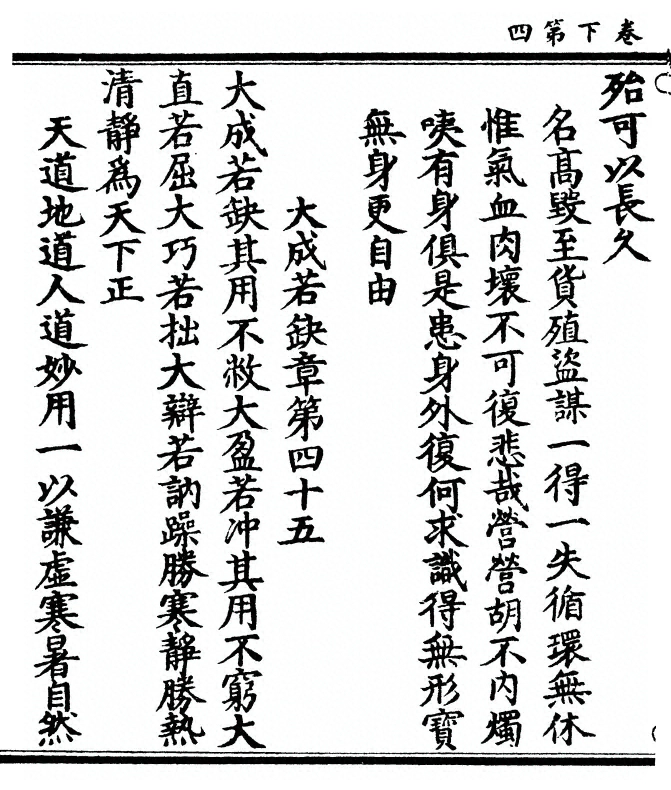 卷下第四
殆可以長久
名高毀至貨殖盜謀一得一失循環無休
惟氣血肉壞不可復悲哉營營胡不內燭
咦有身俱是患身外復何求識得無形寶
無身更自由
大成若缺章第四十五
大成若缺其用不敝大盈若冲其用不窮大
直若屈大巧若拙大辯若訥躁勝寒靜勝熱
清靜為天下正
天道地道人道妙用一以謙虛寒暑自然